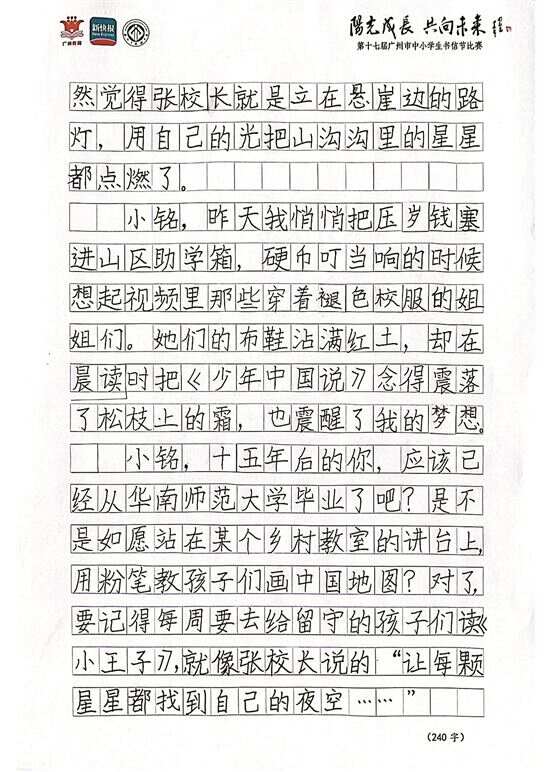 广州教育
新快报
陽光成長 共向未来
第十七届广州市中小学生书信节比赛
然觉得张校长就是立在悬崖边的路
灯，用自己的光把山沟沟里的星星
都点燃了。
小铭，昨天我悄悄把压岁钱塞
进山区助学箱，硬币叮当响的时候
想起视频里那些穿着褪色校服的姐
姐们。她们的布鞋沾满红土，却在
晨读时把《少年中国说》念得震落
了松枝上的霜，也震醒了我的梦想。
小铭，十五年后的你，应该已
经从华南师范大学毕业了吧？是不
是如愿站在某个乡村教室的讲台上，
用粉笔教孩子们画中国地图？对了，
要记得每周要去给留守的孩子们读《
小王子》，就像张校长说的“让每颗
星星都找到自己的夜空……”
（240 字）